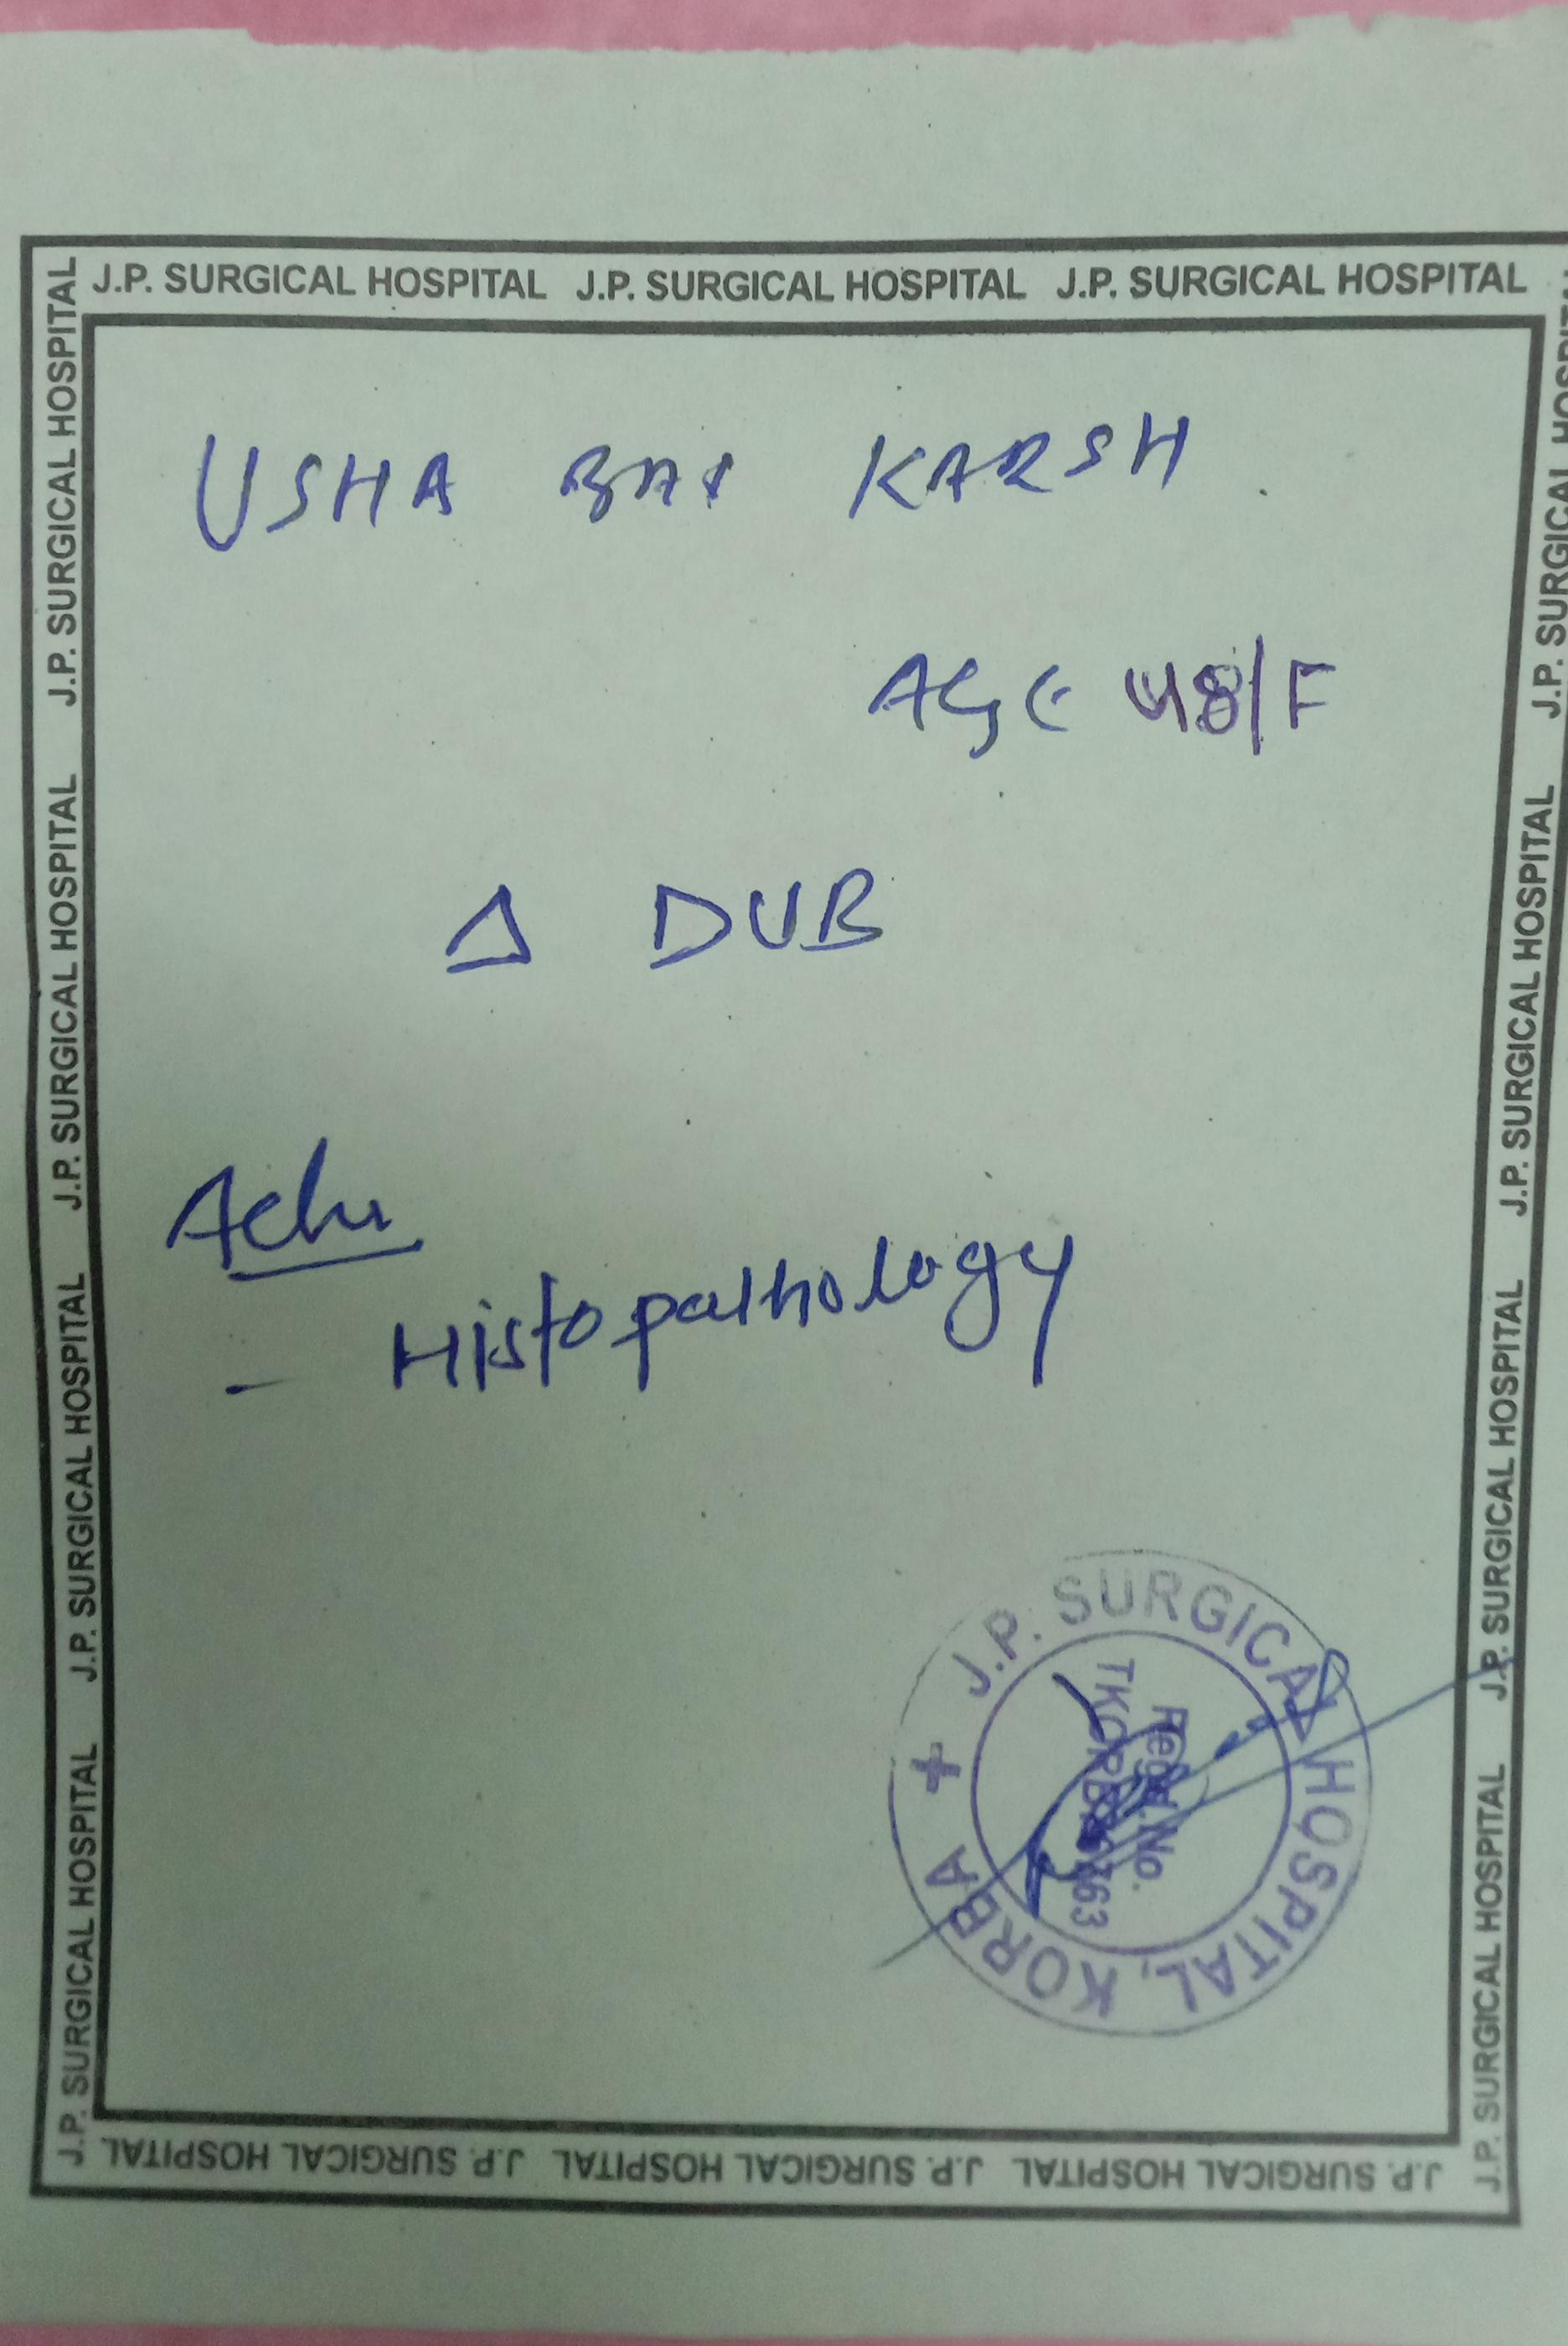 J.P. SURGICAL HOSPITAL J.P. SURGICAL HOSPITAL J.P. SURGICAL HOSPITAL
USHA BAI KARSH
AGE 48/F
Δ DUB
Adv
- Histopathology
J.P. SURGICAL HOSPITAL, KORBA +
Regd. No.
J.P. SURGICAL HOSPITAL J.P. SURGICAL HOSPITAL J.P. SURGICAL HOSPITAL J.P. SURGICAL HOSPITAL
J.P. SURGICAL HOSPITAL J.P. SURGICAL HOSPITAL J.P. SURGICAL HOSPITAL J.P. SURGICAL HOSPITAL
J.P. SURGICAL HOSPITAL J.P. SURGICAL HOSPITAL J.P. SURGICAL HOSPITAL